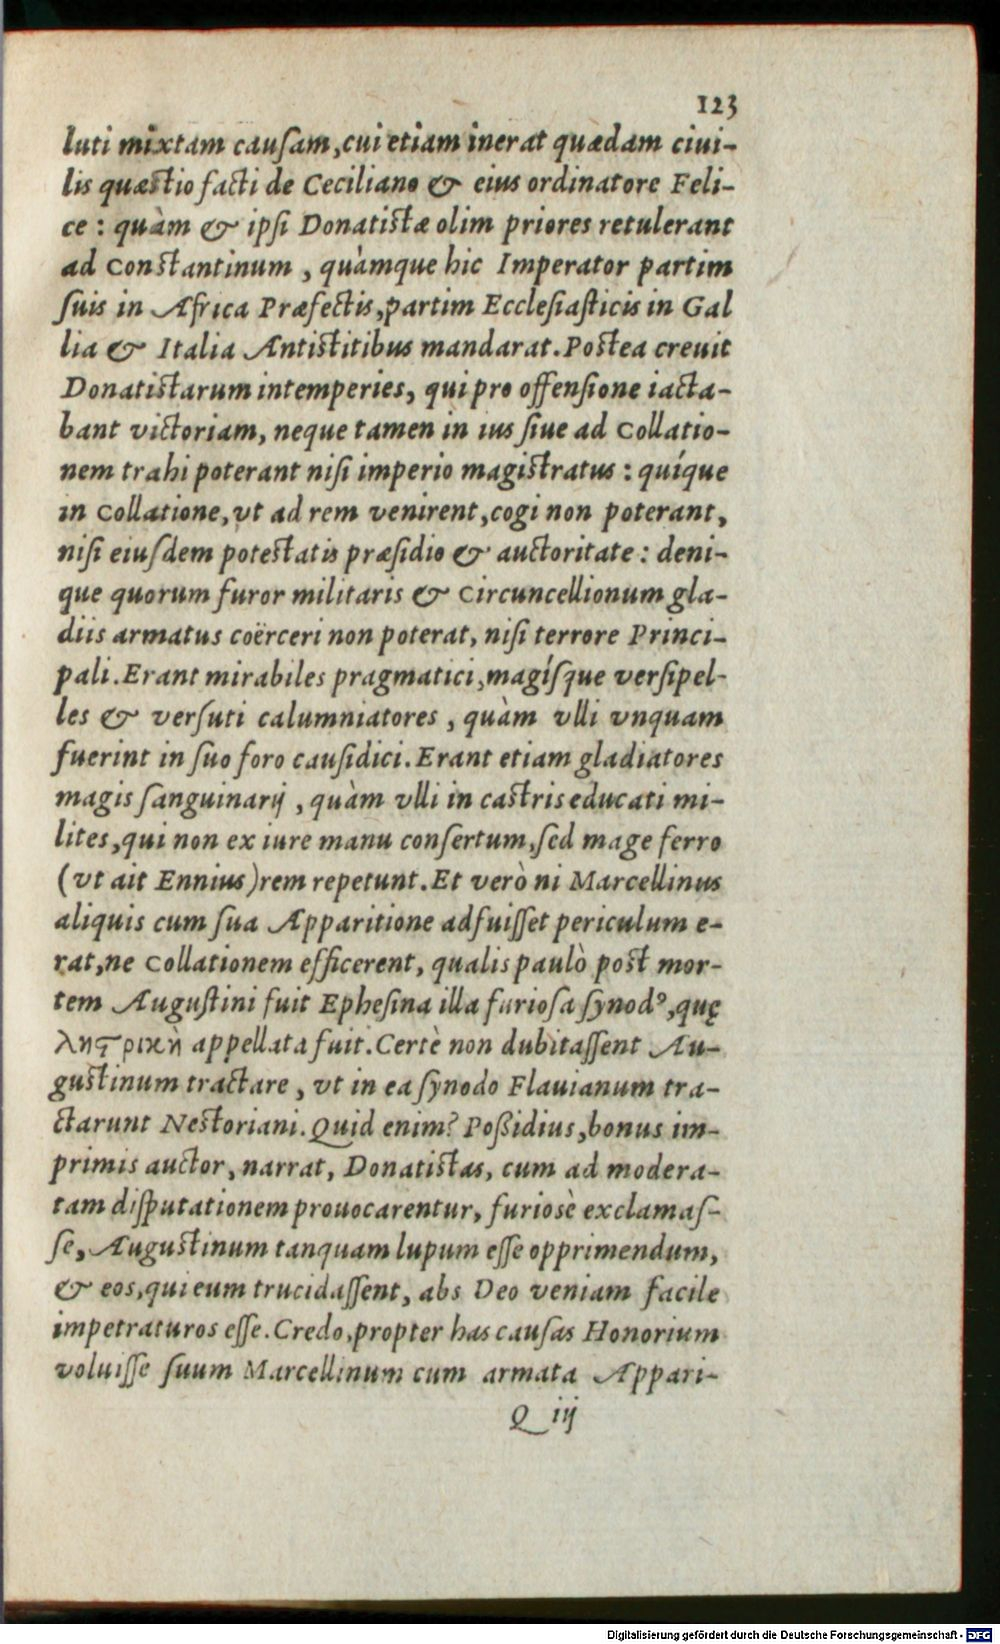 123
luti mixtam cauſam, cui etiam inerat quædam ciui-
lis quæſtio facti de Ceciliano & eius ordinatore Feli-
ce : quàm & ipſi Donatiſtæ olim priores retulerant
ad Conſtantinum , quàmque hic Imperator partim
ſuis in Africa Præfectis, partim Eccleſiaſticis in Gal
lia & Italia Antiſtitibus mandarat. Poſtea creuit
Donatiſtarum intemperies, qui pro offenſione iacta-
bant victoriam, neque tamen in ius ſiue ad Collatio-
nem trahi poterant niſi imperio magiſtratus : quíque
in Collatione, vt ad rem venirent, cogi non poterant,
niſi eiuſdem poteſtatis præſidio & auctoritate : deni-
que quorum furor militaris & Circuncellionum gla-
diis armatus coërceri non poterat, niſi terrore Princi-
pali. Erant mirabiles pragmatici, magíſque verſipel-
les & verſuti calumniatores , quàm vlli vnquam
fuerint in ſuo foro cauſidici. Erant etiam gladiatores
magis ſanguinarij , quàm vlli in caſtris educati mi-
lites, qui non ex iure manu conſertum, ſed mage ferro
(vt ait Ennius) rem repetunt. Et verò ni Marcellinus
aliquis cum ſua Apparitione adfuiſſet periculum e-
rat, ne Collationem efficerent, qualis paulò poſt mor-
tem Auguſtini fuit Epheſina illa furioſa ſynodꝰ, quę
ληϛρικὴ appellata fuit. Certè non dubitaſſent Au-
guſtinum tractare , vt in ea ſynodo Flauianum tra-
ctarunt Neſtoriani. Quid enim? Poßidius, bonus im-
primis auctor, narrat, Donatiſtas, cum ad modera-
tam diſputationem prouocarentur, furiosè exclamaſ-
ſe, Auguſtinum tanquam lupum eſſe opprimendum,
& eos, qui eum trucidaſſent, abs Deo veniam facile
impetraturos eſſe. Credo, propter has cauſas Honorium
voluiſſe ſuum Marcellinum cum armata Appari-
Q iij
Digitalisierung gefördert durch die Deutsche Forschungsgemeinschaft - DFG